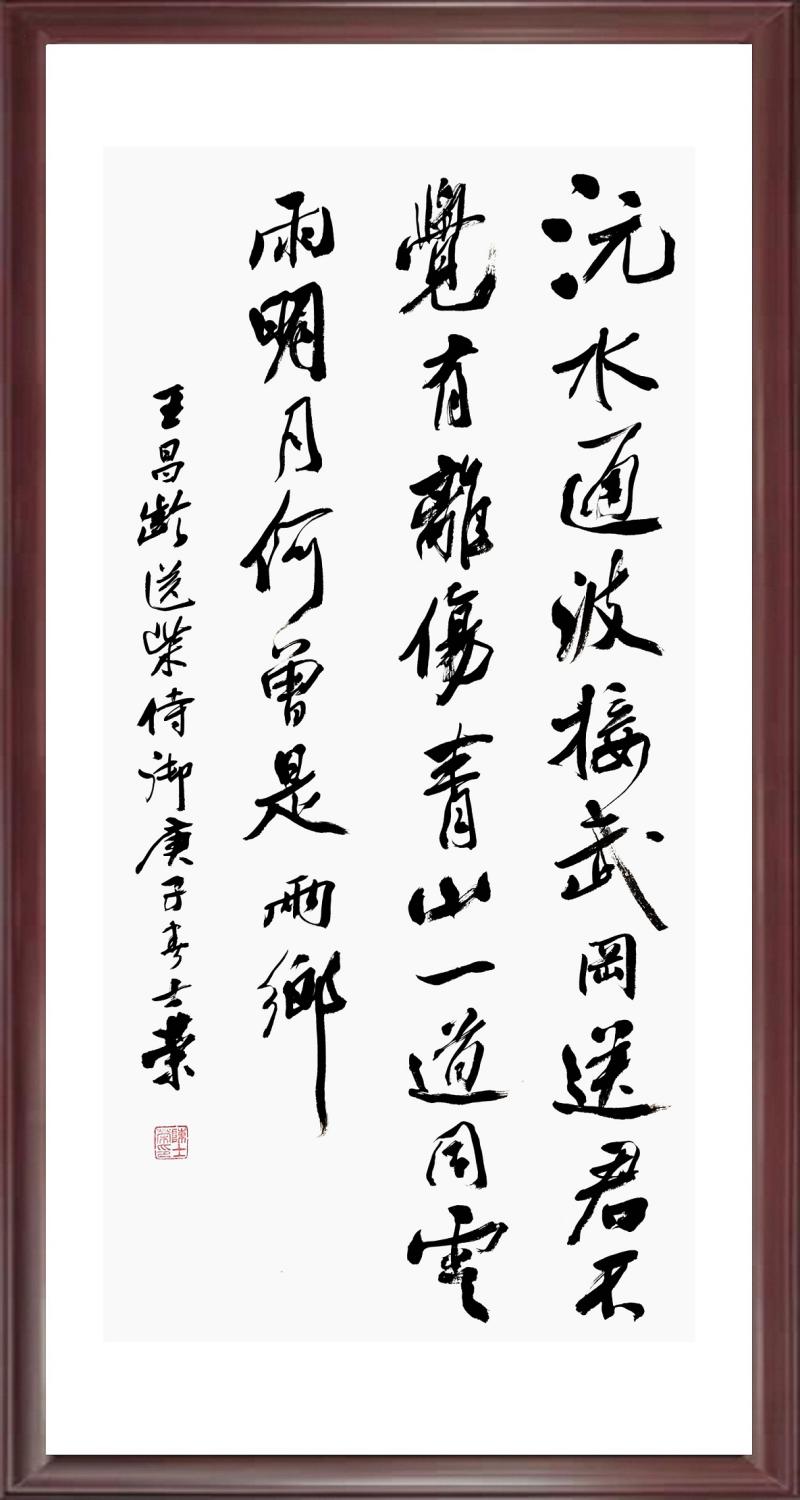 沅水通波接武岡送君不
覺有離傷青山一道同雲
雨明月何曾是兩鄉
王昌齡送柴侍御庚子春士榮
陳士榮印